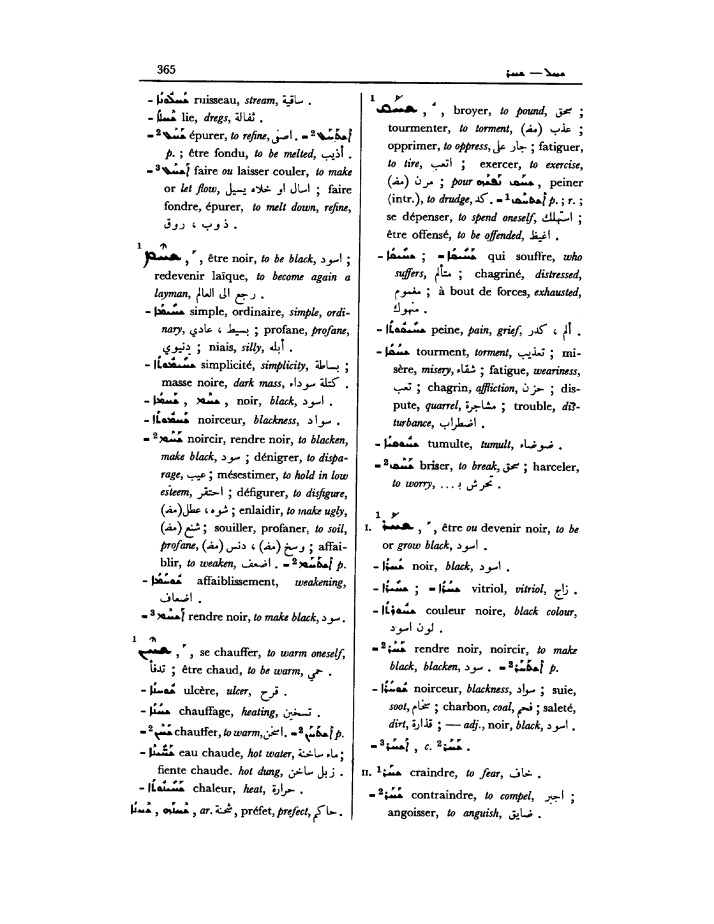 365 ܫܚܠ — ܫܚܪ
- ܫܚܠܐ ruisseau, stream, ساقية .
- lie, dregs, ثفالة .
= ² ܫܚܠ épurer, to refine, اصفى . = ²
p. ; être fondu, to be melted, أذيب .
= ³ ܐܫܚܠ faire ou laisser couler, to make
or let flow, اسال او خلاه يسيل ; faire
fondre, épurer, to melt down, refine,
ذوب ، روق .
¹ ܫܚܡ , être noir, to be black, اسود ;
redevenir laïque, to become again a
layman, رجع الى العالم .
- ܫܚܝܡܐ simple, ordinaire, simple, ordi-
nary, بسيط ، عادي ; profane, profane,
دنيوي ; niais, silly, أبله .
- ܫܚܝܡܘܬܐ simplicité, simplicity, بساطة ;
masse noire, dark mass, كتلة سوداء .
- , noir, black, اسود .
- noirceur, blackness, سواد .
= ² ܫܚܡ noircir, rendre noir, to blacken,
make black, سود ; dénigrer, to dispa-
rage, عيب ; mésestimer, to hold in low
esteem, احتقر ; défigurer, to disfigure,
شوه ، عطل (مف) ; enlaidir, to make ugly,
شنع (مف) ; souiller, profaner, to soil,
profane, وسخ (مف) ، دنس (مف) ; affai-
blir, to weaken, اضعف . = ² ܐܫܬܚܡ p.
- affaiblissement, weakening,
اضعاف .
= ³ ܐܫܚܡ rendre noir, to make black, سود .
¹ ܫܚܢ , se chauffer, to warm oneself,
تدفأ ; être chaud, to be warm, حمي .
- ܫܘܚܢܐ ulcère, ulcer, قرح .
- ܫܚܢܐ chauffage, heating, تسخين .
= ² ܫܚܢ chauffer, to warm, اسخن . = ² ܐܫܬܚܢ p.
- eau chaude, hot water, ماء ساخنة ;
fiente chaude. hot dung, زبل ساخن .
- chaleur, heat, حرارة .
, ar. شحنة , préfet, prefect, حاكم .
¹ ܫܚܩ , broyer, to pound, سحق ;
tourmenter, to torment, عذب (مف) ;
opprimer, to oppress, جار على ; fatiguer,
to tire, اتعب ; exercer, to exercise,
مرن (مف) ; pour ܫܚܩ ܢܦܫܗ , peiner
(intr.), to drudge, كد . = ¹ ܐܫܬܚܩ p. ; r. ;
se dépenser, to spend oneself, استهلك ;
être offensé, to be offended, اغيظ .
- ; = qui souffre, who
suffers, متألم ; chagriné, distressed,
مغموم ; à bout de forces, exhausted,
منهوك .
- ܫܚܝܩܘܬܐ peine, pain, grief, ألم ، كدر .
- ܫܚܩܐ tourment, torment, تعذيب ; mi-
sère, misery, شقاء ; fatigue, weariness,
تعب ; chagrin, affliction, حزن ; dis-
pute, quarrel, مشاجرة ; trouble, dis-
turbance, اضطراب .
- tumulte, tumult, ضوضاء .
= ² ܫܚܩ briser, to break, سحق ; harceler,
to worry, تحرش ب ... .
¹
I. ܫܚܪ , être ou devenir noir, to be
or grow black, اسود .
- noir, black, اسود .
- ; = vitriol, vitriol, زاج .
- couleur noire, black colour,
لون اسود .
= ² ܫܚܪ rendre noir, noircir, to make
black, blacken, سود . = ² ܐܫܬܚܪ p.
- ܫܘܚܪܐ noirceur, blackness, سواد ; suie,
soot, سخام ; charbon, coal, فحم ; saleté,
dirt, قذارة ; — adj., noir, black, اسود .
= ³ ܐܫܚܪ , c. ² ܫܚܪ .
II. ¹ ܫܚܪ craindre, to fear, خاف .
= ² ܫܚܪ contraindre, to compel, اجبر ;
angoisser, to anguish, ضايق .